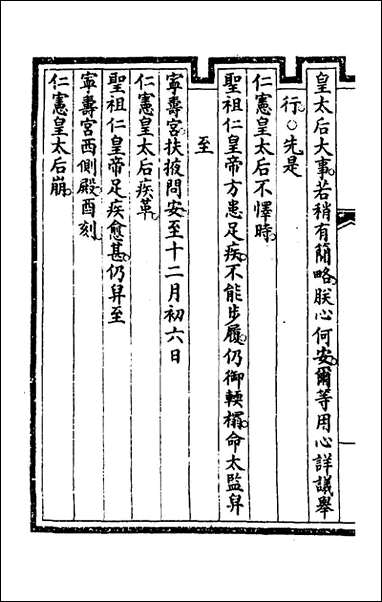 皇太后大事。若稍有簡略。朕心何安。爾等用心詳議舉
行。○先是
仁憲皇太后不懌時。
聖祖仁皇帝方患足疾。不能步履。仍御輭榻。命太監舁
至
寧壽宮。扶掖問安。至十二月初六日
仁憲皇太后疾革。
聖祖仁皇帝足疾愈甚。仍舁至
寧壽宮西側殿。酉刻
仁憲皇太后崩。